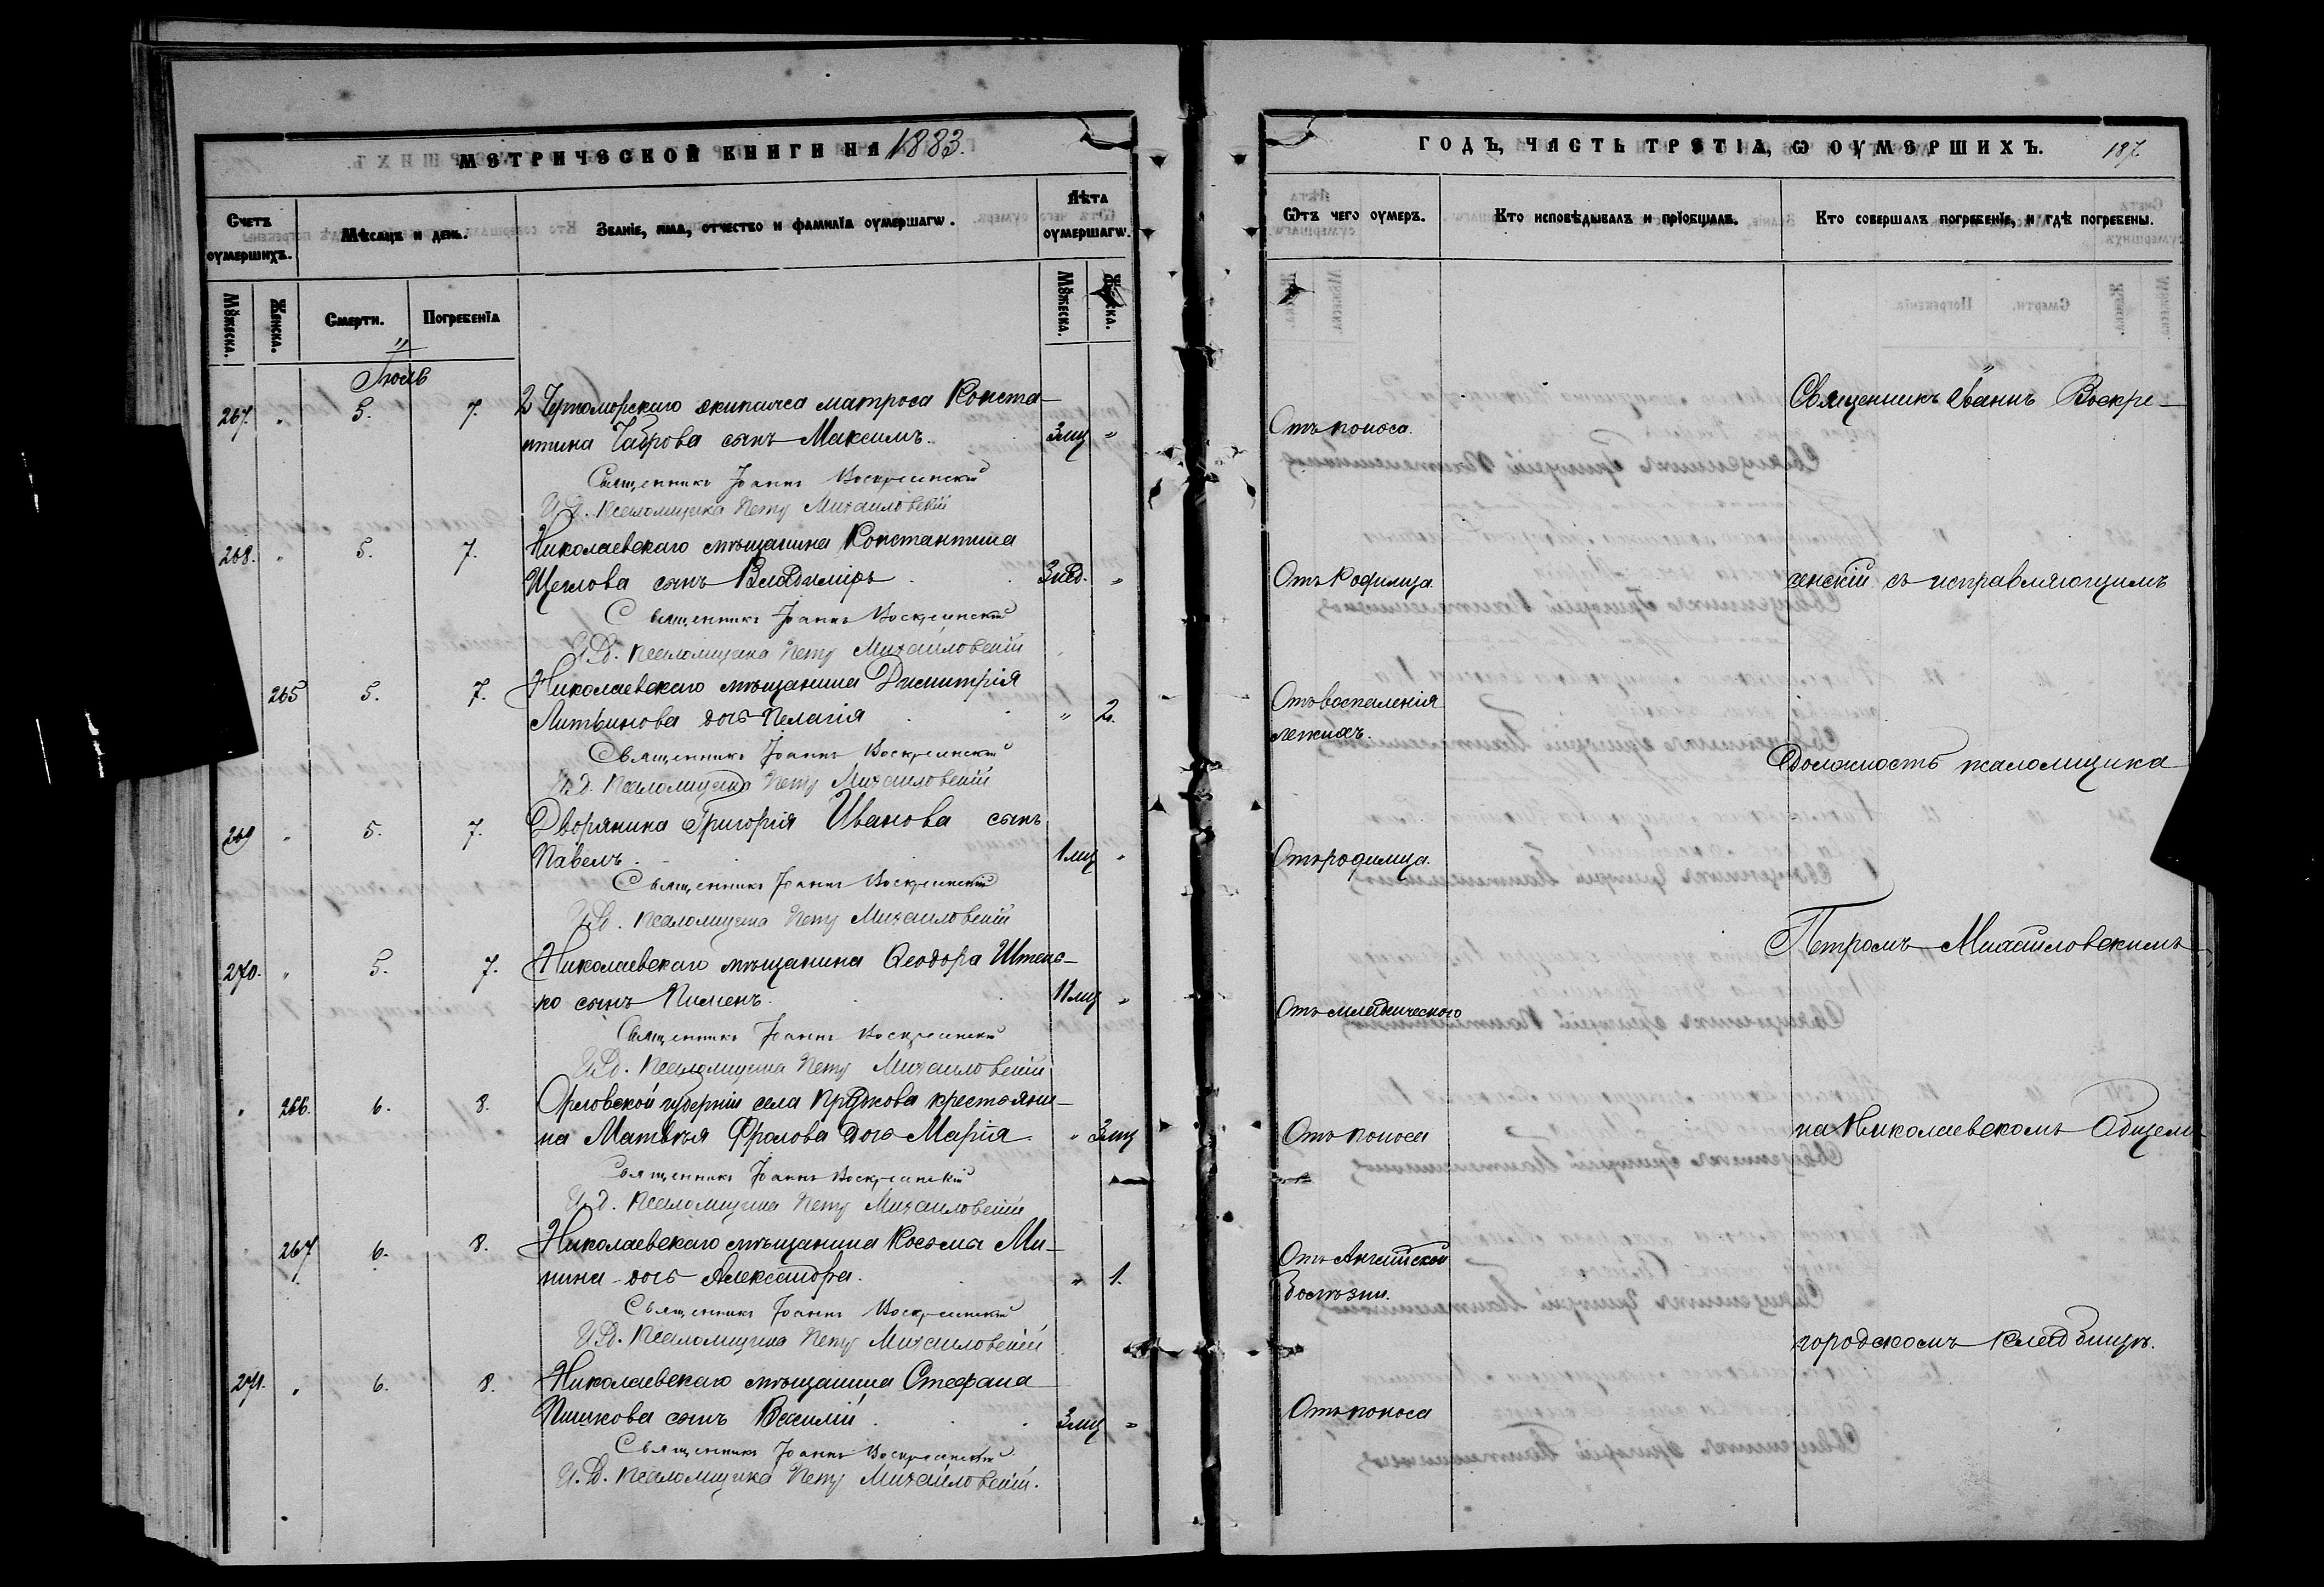 МЕТРИЧЕСКОЙ КНИГИ НА 1883.
Счетъ оумершихъ.
Мѣсяцъ и день.
Званіе, имя, отчество и фамилія оумершагѡ.
Лѣта оумершагѡ.
Мѹжеска.
Женска.
Смерти.
Погребенїѧ
Мѹжеска.
Женска.
Іюль
267. " 5. 7. 2 Черноморскаго экипажа матроса Конста-
нтина Чаброва сынъ Максимъ. 3 мц "
Священникъ Іоаннъ Воскресенскій
И. Д. Псаломщика Петръ Михайловскій
268. " 5. 7. Николаевскаго мѣщанина Константина
Щеглова сынъ Владиміръ. 3 нед. "
Священникъ Іоаннъ Воскресенскій
И. Д. Псаломщика Петръ Михайловскій
265 5. 7. Николаевскаго мѣщанина Димитрія
Литвинова дочь Пелагія " 2.
Священникъ Іоаннъ Воскресенскій
И. Д. Псаломщика Петръ Михайловскій
269 " 5. 7. Дворянина Григорія Иванова сынъ
Павелъ. 1 мц "
Священникъ Іоаннъ Воскресенскій
И. Д. Псаломщика Петръ Михайловскій
270. " 5. 7. Николаевскаго мѣщанина Ѳеодора
ко сынъ Пименъ. 11 мц "
Священникъ Іоаннъ Воскресенскій
И. Д. Псаломщика Петръ Михайловскій
" 266. 6. 8. Орловской губерніи села крестьяни-
на Матвѣя Фролова дочь Марія. " 3 мц
Священникъ Іоаннъ Воскресенскій
И. Д. Псаломщика Петръ Михайловскій
267 6. 8. Николаевскаго мѣщанина Косьма Ми-
нина дочь Александра. " 1.
Священникъ Іоаннъ Воскресенскій
И. Д. Псаломщика Петръ Михайловскій
271. " 6. 8. Николаевскаго мѣщанина Стефана
Пишкова сынъ Василій. 3 мц "
Священникъ Іоаннъ Воскресенскій
И. Д. Псаломщика Петръ Михайловскій.
ГОДЪ, ЧАСТЬ ТРЕТІѦ, Ѡ ОУМЕРШИХЪ. 187.
Ѿтъ чего оумеръ.
Кто исповѣдывалъ и прїобщалъ.
Кто совершалъ погребенїе, и гдѣ погребены.
Священникъ Іоаннъ Воскре-
Отъ поноса.
Отъ родимца. сенскій съ исправляющимъ
Отъ воспаленія
легкихъ.
должность псаломщика
Отъ родимца.
Петромъ Михайловскимъ
Отъ младенческого
Отъ поноса на Николаевскомъ Общем
Отъ Англійской
болѣзни.
городскомъ кладбищѣ.
Отъ поноса